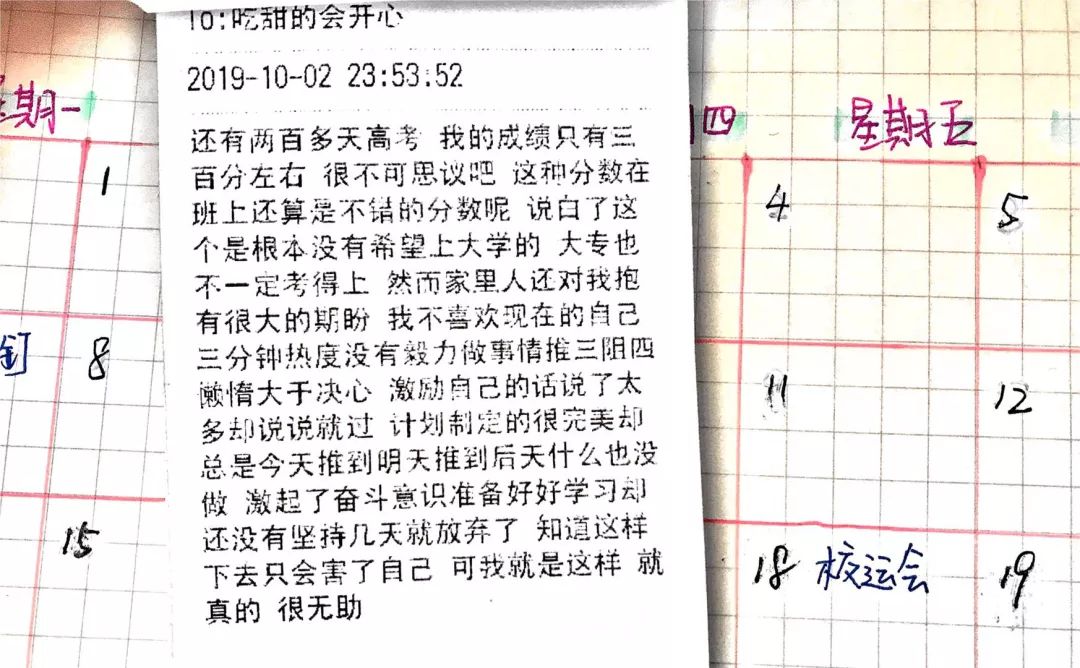 To:吃甜的会开心
2019-10-02 23:53:52
还有两百多天高考 我的成绩只有三
百分左右 很不可思议吧 这种分数在
班上还算是不错的分数呢 说白了这
个是根本没有希望上大学的 大专也
不一定考得上 然而家里人还对我抱
有很大的期盼 我不喜欢现在的自己
三分钟热度没有毅力做事情推三阻四
懒惰大于决心 激励自己的话说了太
多却说说就过 计划制定的很完美却
总是今天推到明天推到后天什么也没
做 激起了奋斗意识准备好好学习却
还没有坚持几天就放弃了 知道这样
下去只会害了自己 可我就是这样 就
真的 很无助
星期一
四
星期五
1
4
5
8
11
12
15
18 校运会
19